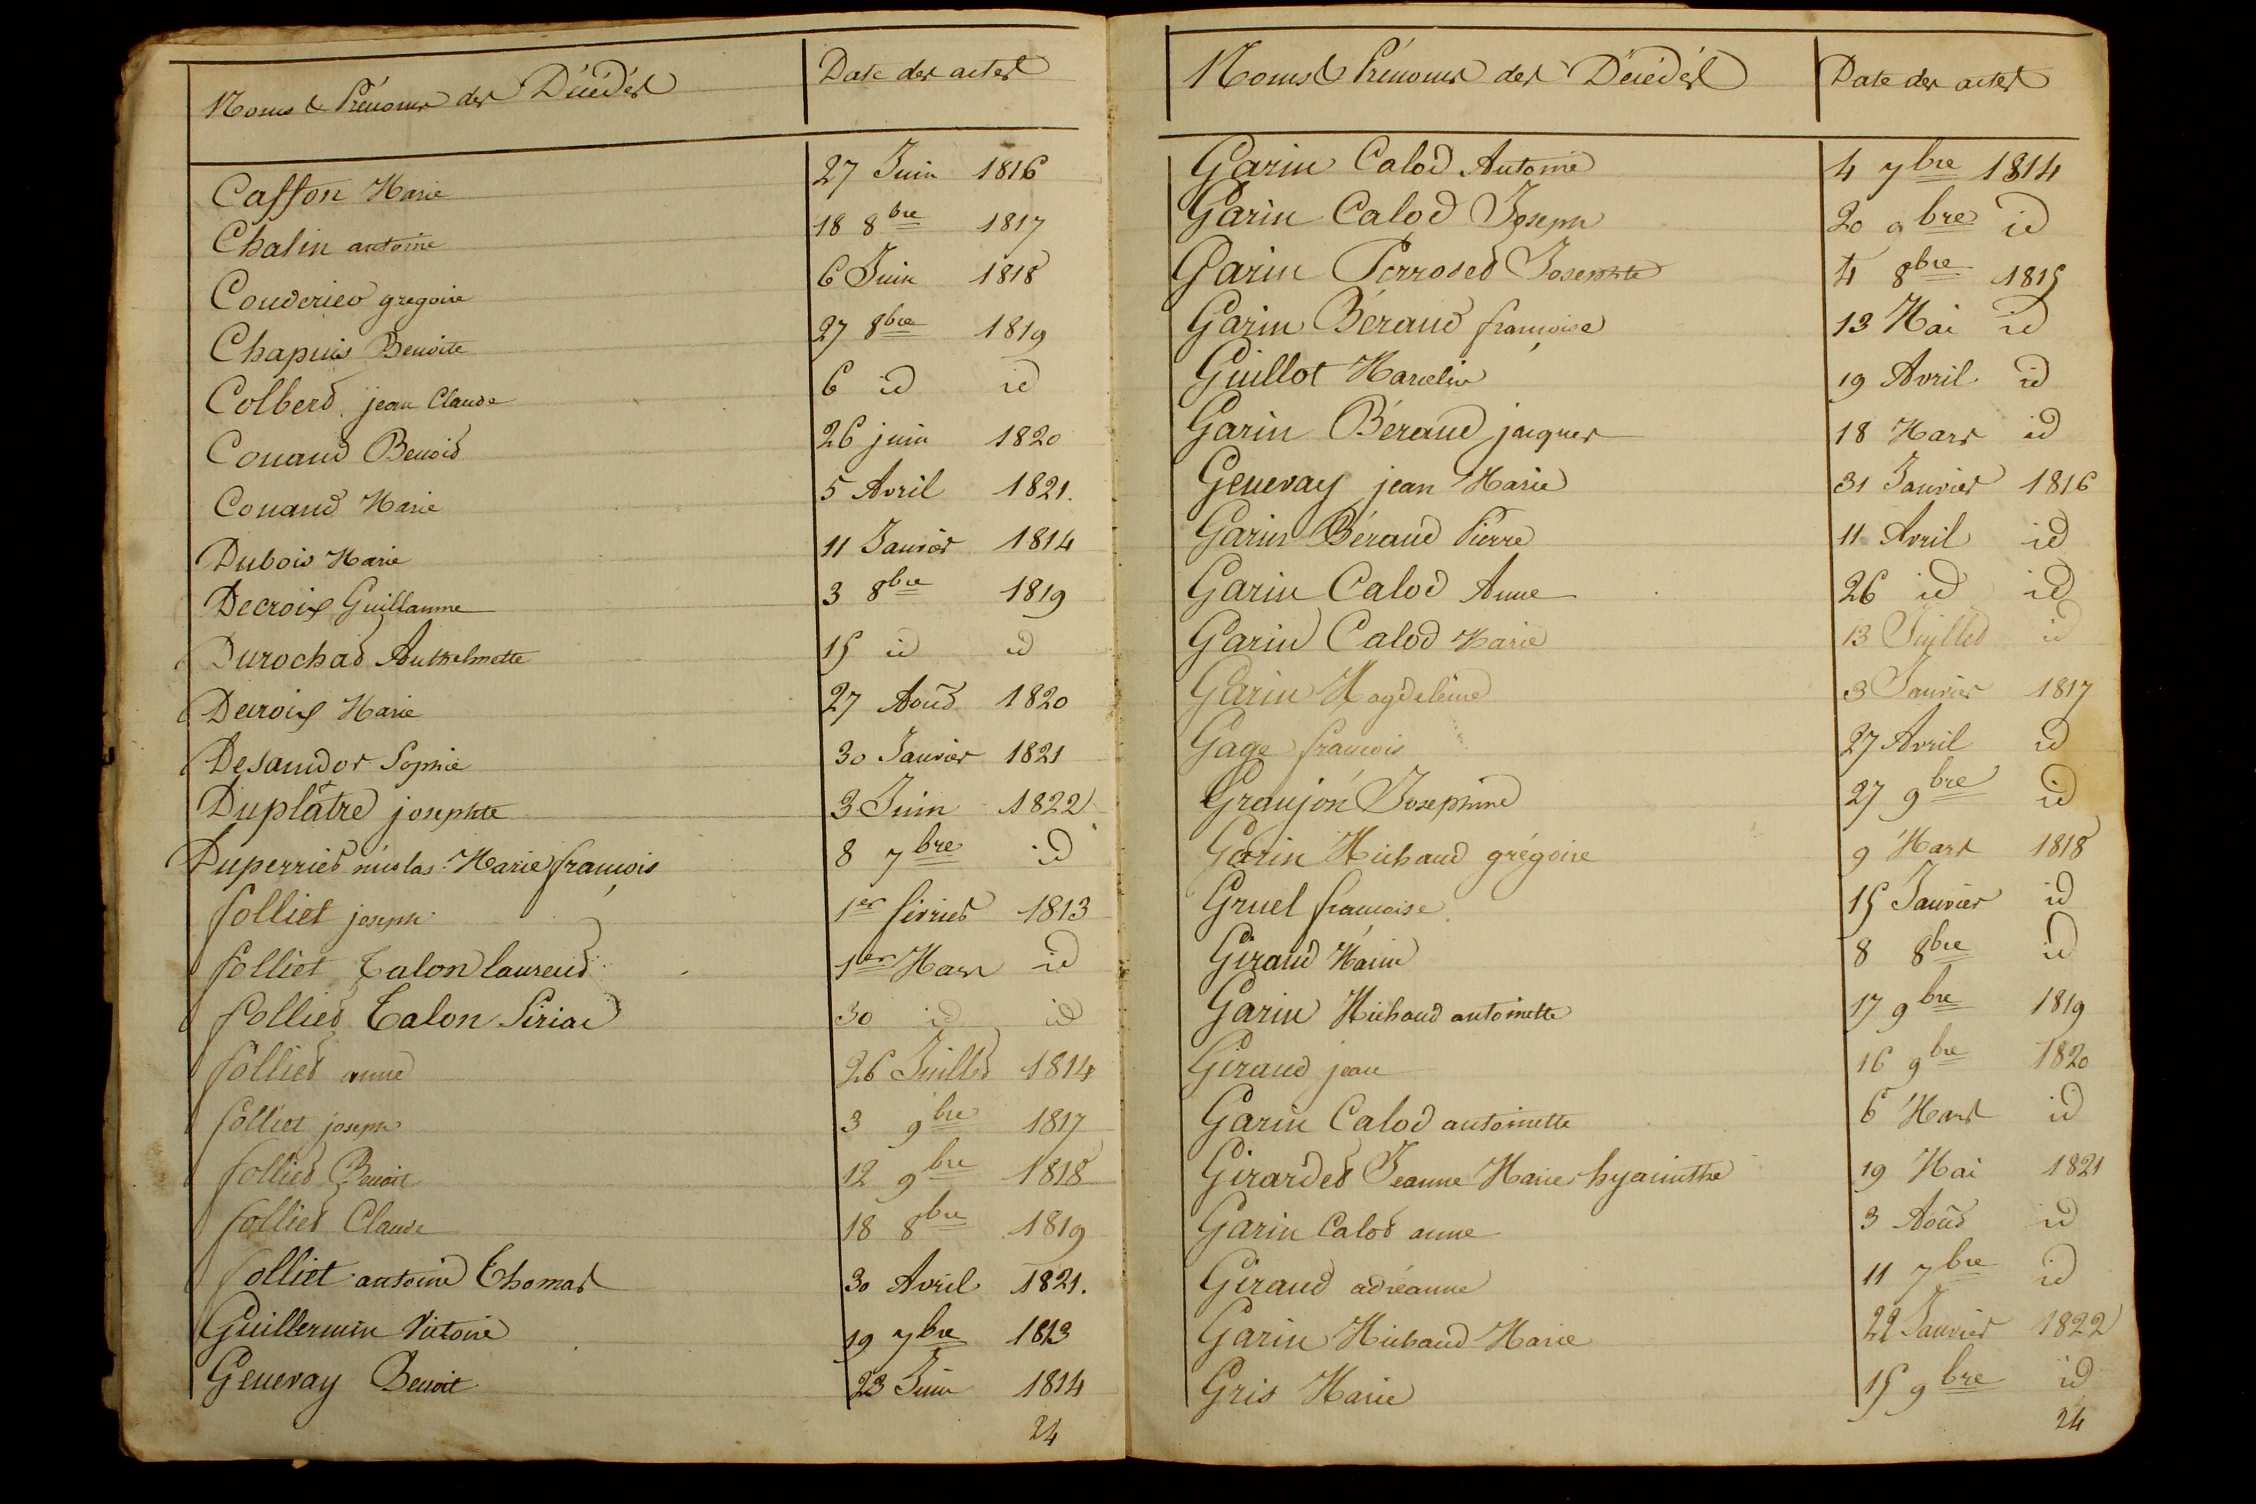 Noms & Prénoms des Décédés Date des actes
Casson Marie 27 Juin 1816
Chalin antoine 18 8bre 1817
Couderier gregoire 6 Juin 1818
Chapuis Benoite 27 8bre 1819
Colberd jean Claude 6 id id
Couaud Benoid 26 juin 1820
Couaud Marie 5 Avril 1821.
Dubois Marie 11 Janvier 1814
Decroix Guillaume 3 8bre 1819
Durochad Anthelmette 15 id id
Decroix Marie 27 Aoud 1820
Desandos Sophie 30 Janvier 1821
Duplâtre josephte 3 Juin 1822
Duperried nicolas Marie françois 8 7bre id
folliet joseph 1er février 1813
folliet Talon laurend 1er Mars id
follied Talon Siriac 30 id id
follied anne 26 Juilled 1814
folliet joseph 3 9bre 1817
follied Benoit 12 9bre 1818
follied Claude 18 8bre 1819
folliet antoine Thomas 30 Avril 1821.
Guillermin Victoire 19 7bre 1813
Genevay Benoit 23 Juin 1814
24
Noms & Prénoms des Décédés Date des actes
Garin Calod Antoine 4 7bre 1814
Garin Calod Joseph 20 9bre id
Garin Perrosed Josephte 4 8bre 1815
Garin Béraud françoise 13 Mai id
Guillot Marcelin 19 Avril id
Garin Béraud jacques 18 Mars id
Genevay jean Marie 31 Janvier 1816
Garin Béraud Pierre 11 Avril id
Garin Calod Anne 26 id id
Garin Calod Marie 13 Juilled id
Garin Magdeleine 3 Janvier 1817
Gage françois 27 Avril id
Graujon Josephine 27 9bre id
Garin Michaud grégoire 9 Mars 1818
Gruel françoise 15 Janvier id
Giraud Marie 8 8bre id
Garin Michaud antoinette 17 9bre 1819
Giraud jean 16 9bre 1820
Garin Calod antoinette 6 Mars id
Girarded Jeanne Marie hyacinthe 19 Mai 1821
Garin Calod anne 3 Aoud id
Giraud adréanne 11 7bre id
Garin Michaud Marie 22 Janvier 1822
Gris Marie 15 9bre id
24